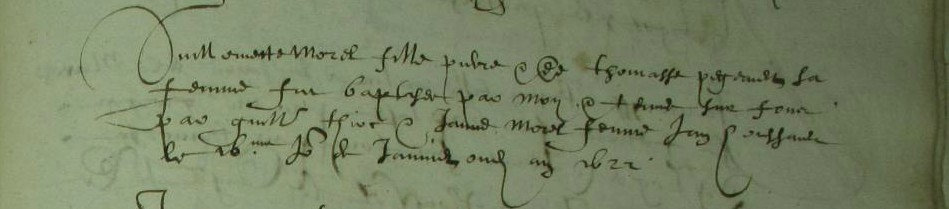 Guillemette Morel fille pierre & de thomasse
femme fut baptisee par moy & tenue sur fons
par guill thier & Janne Morel femme Jan
le xb me Jo de Janvier oud an 1622